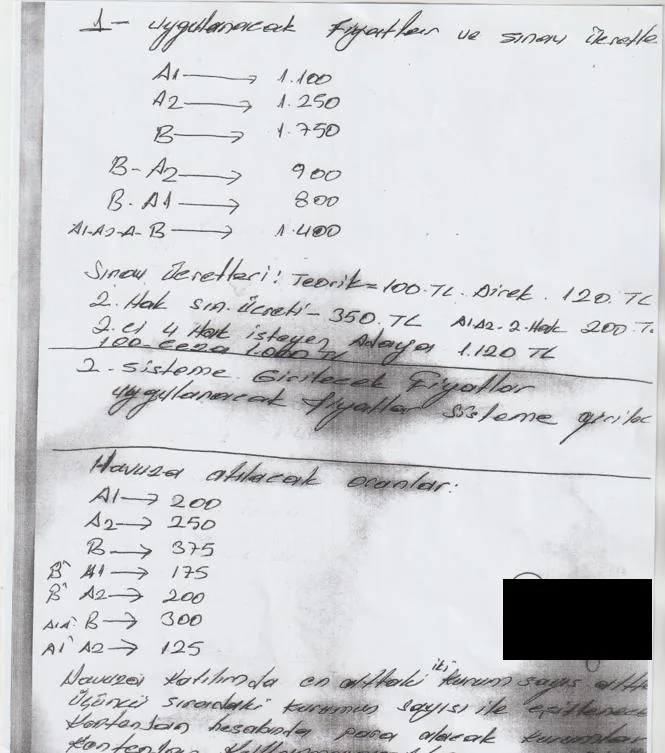 1- uygulanacak Fiyatlar ve sınav ücretle
A1 → 1.100
A2 → 1.250
B → 1.750
B-A2 → 900
B-A1 → 800
A1-A2-A-B → 1.400
Sınav ücretleri: Teorik=100.TL. Direk. 120.TL
2. Hak sın. ücreti- 350.TL A1A2-2-Hak 200 T.
2. ci 4 Hak isteyen Adaya 1.120 TL
100 ceza 1.000 TL
2-sisteme Girilecek Fiyatlar
uygulanacak fiyatlar sisteme girilec
Havuza atılacak oranlar:
A1 → 200
A2 → 250
B → 375
B^ A1 → 175
B^ A2 → 200
B → 300
A1^ A2 → 125
Havuza katılımda en alttaki iki kurum sayıs
üçüncü sıradaki kurumun sayısı ile eşitlenece
Kontenjan hesabında para alacak kurumlar
Kontenjan